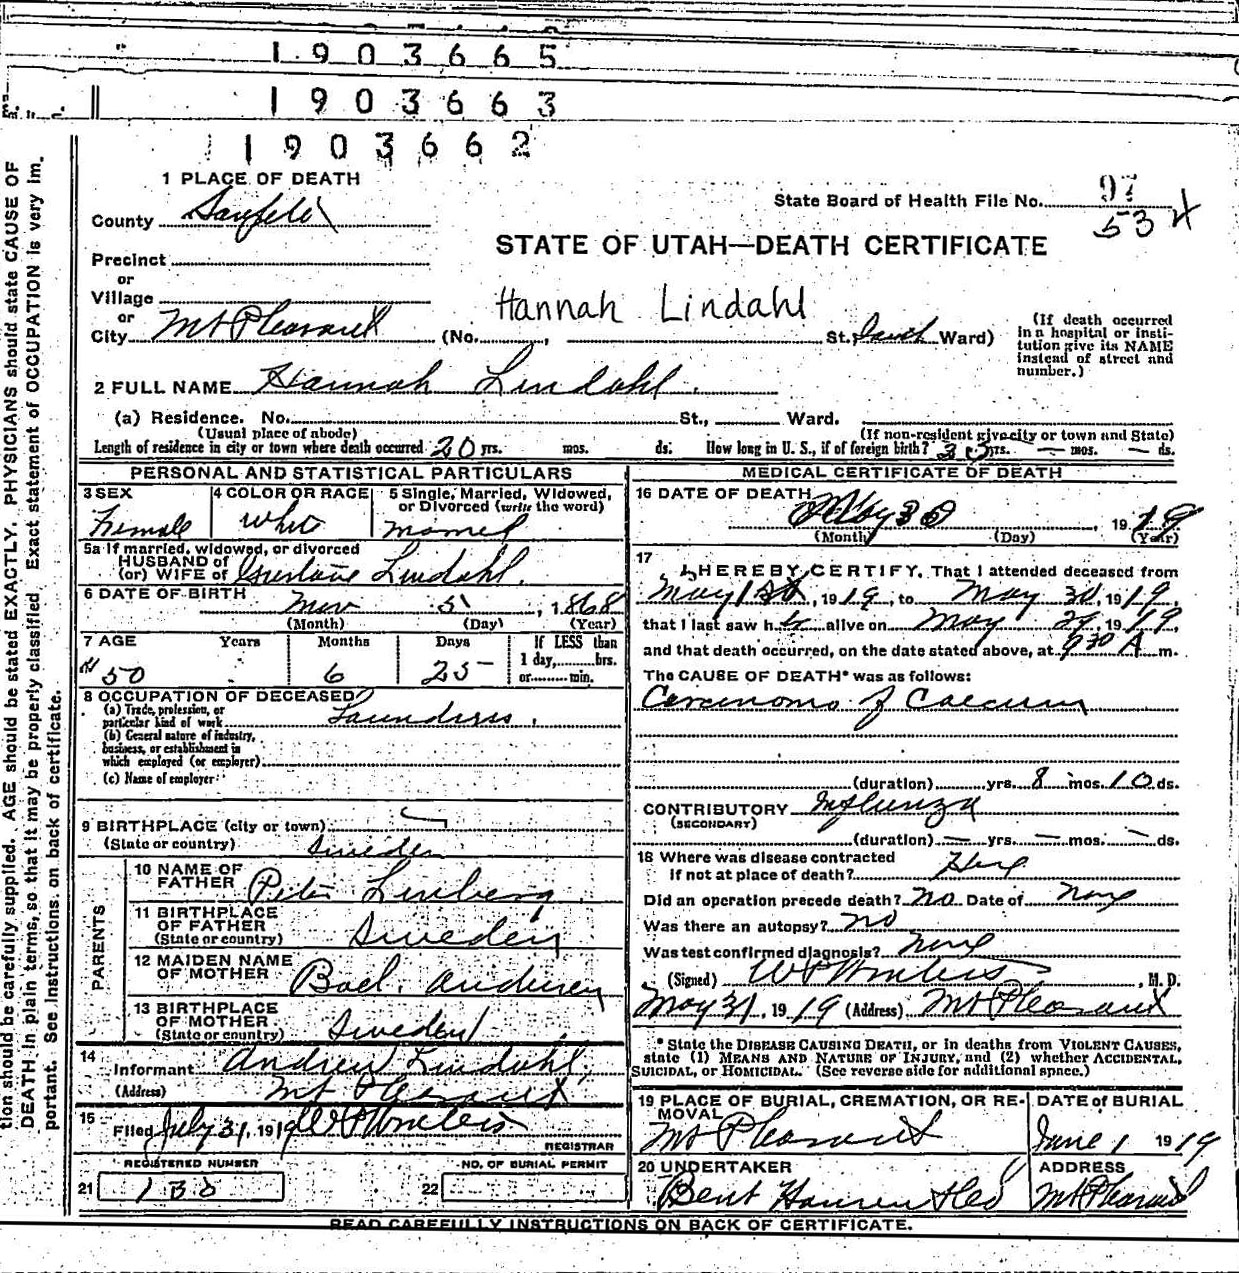 1903665
1903663
1903662
1 PLACE OF DEATH
County
State Board of Health File No. 97
534
STATE OF UTAH—DEATH CERTIFICATE
Precinct
or
Village
Hannah Lindahl
or
City Mt Pleasant (No. , St. Ward)
(If death occurred in a hospital or institution give its NAME instead of street and number.)
2 FULL NAME Hannah Lindahl.
(a) Residence. No. St., Ward.
(Usual place of abode) (If non-resident give city or town and State)
Length of residence in city or town where death occurred 20 yrs. mos. ds. How long in U. S., if of foreign birth? yrs. — mos. — ds.
PERSONAL AND STATISTICAL PARTICULARS
3 SEX 4 COLOR OR RACE 5 Single, Married, Widowed, or Divorced (write the word)
Female White
5a If married, widowed, or divorced
HUSBAND of
(or) WIFE of Lindahl.
6 DATE OF BIRTH
Nov 5, 1868
(Month) (Day) (Year)
7 AGE Years Months Days If LESS than
1 day, hrs.
or min.
50 6 25
8 OCCUPATION OF DECEASED
(a) Trade, profession, or
particular kind of work Laundress.
(b) General nature of industry,
business, or establishment in
which employed (or employer)
(c) Name of employer
9 BIRTHPLACE (city or town)
(State or country) Sweden
PARENTS
10 NAME OF
FATHER Peter Linberg
11 BIRTHPLACE
OF FATHER
(State or country) Sweden
12 MAIDEN NAME
OF MOTHER
13 BIRTHPLACE
OF MOTHER
(State or country) Sweden
14
Informant Andrew Lindahl,
(Address) Mt Pleasant
15
Filed July 31, 1919
REGISTRAR
REGISTERED NUMBER NO. OF BURIAL PERMIT
21 22
MEDICAL CERTIFICATE OF DEATH
16 DATE OF DEATH
May 30, 1919
(Month) (Day) (Year)
17
I HEREBY CERTIFY, That I attended deceased from
May 1st, 1919, to May 30, 1919,
that I last saw h alive on May 29, 1919,
and that death occurred, on the date stated above, at 930 A m.
The CAUSE OF DEATH* was as follows:
Carcinoma of Caecum
(duration) yrs. 8 mos. 10 ds.
CONTRIBUTORY Influenza
(SECONDARY)
(duration) — yrs. — mos. — ds.
18 Where was disease contracted
If not at place of death? Here
Did an operation precede death? No Date of None
Was there an autopsy? No
Was test confirmed diagnosis? None
(Signed) , M. D.
May 31, 1919 (Address) Mt Pleasant
* State the DISEASE CAUSING DEATH, or in deaths from VIOLENT CAUSES,
state (1) MEANS AND NATURE OF INJURY, and (2) whether ACCIDENTAL,
SUICIDAL, or HOMICIDAL. (See reverse side for additional space.)
19 PLACE OF BURIAL, CREMATION, OR REMOVAL DATE of BURIAL
Mt Pleasant June 1 1919
20 UNDERTAKER ADDRESS
Bent Hansen Mt Pleasant
READ CAREFULLY INSTRUCTIONS ON BACK OF CERTIFICATE.
tion should be carefully supplied. AGE should be stated EXACTLY. PHYSICIANS should state CAUSE OF
DEATH in plain terms, so that it may be properly classified. Exact statement of OCCUPATION is very im-
portant. See instructions on back of certificate.